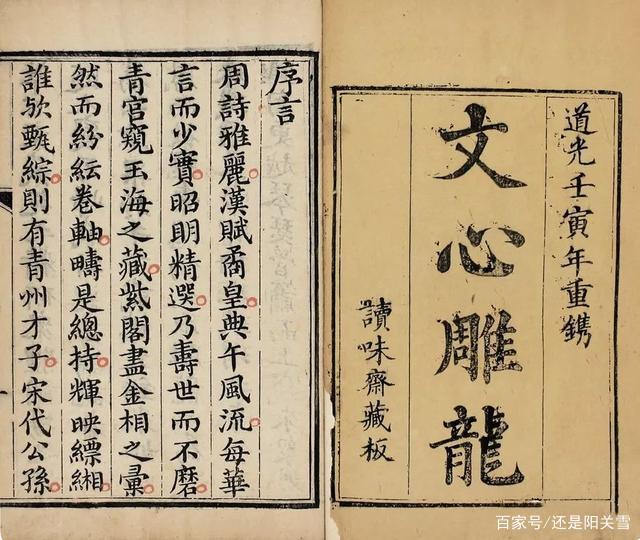 道光壬寅年重鐫
文心雕龍
讀味齋藏板
序言
周詩雅麗漢賦矞皇典午風流每華
言而少實昭明精選乃壽世而不磨
青宮窺玉海之藏紫閣盡金相之彙
然而紛紜卷軸疇是總持輝映縹緗
誰欤甄綜則有青州才子宋代公孫
百家号/还是阳关雪